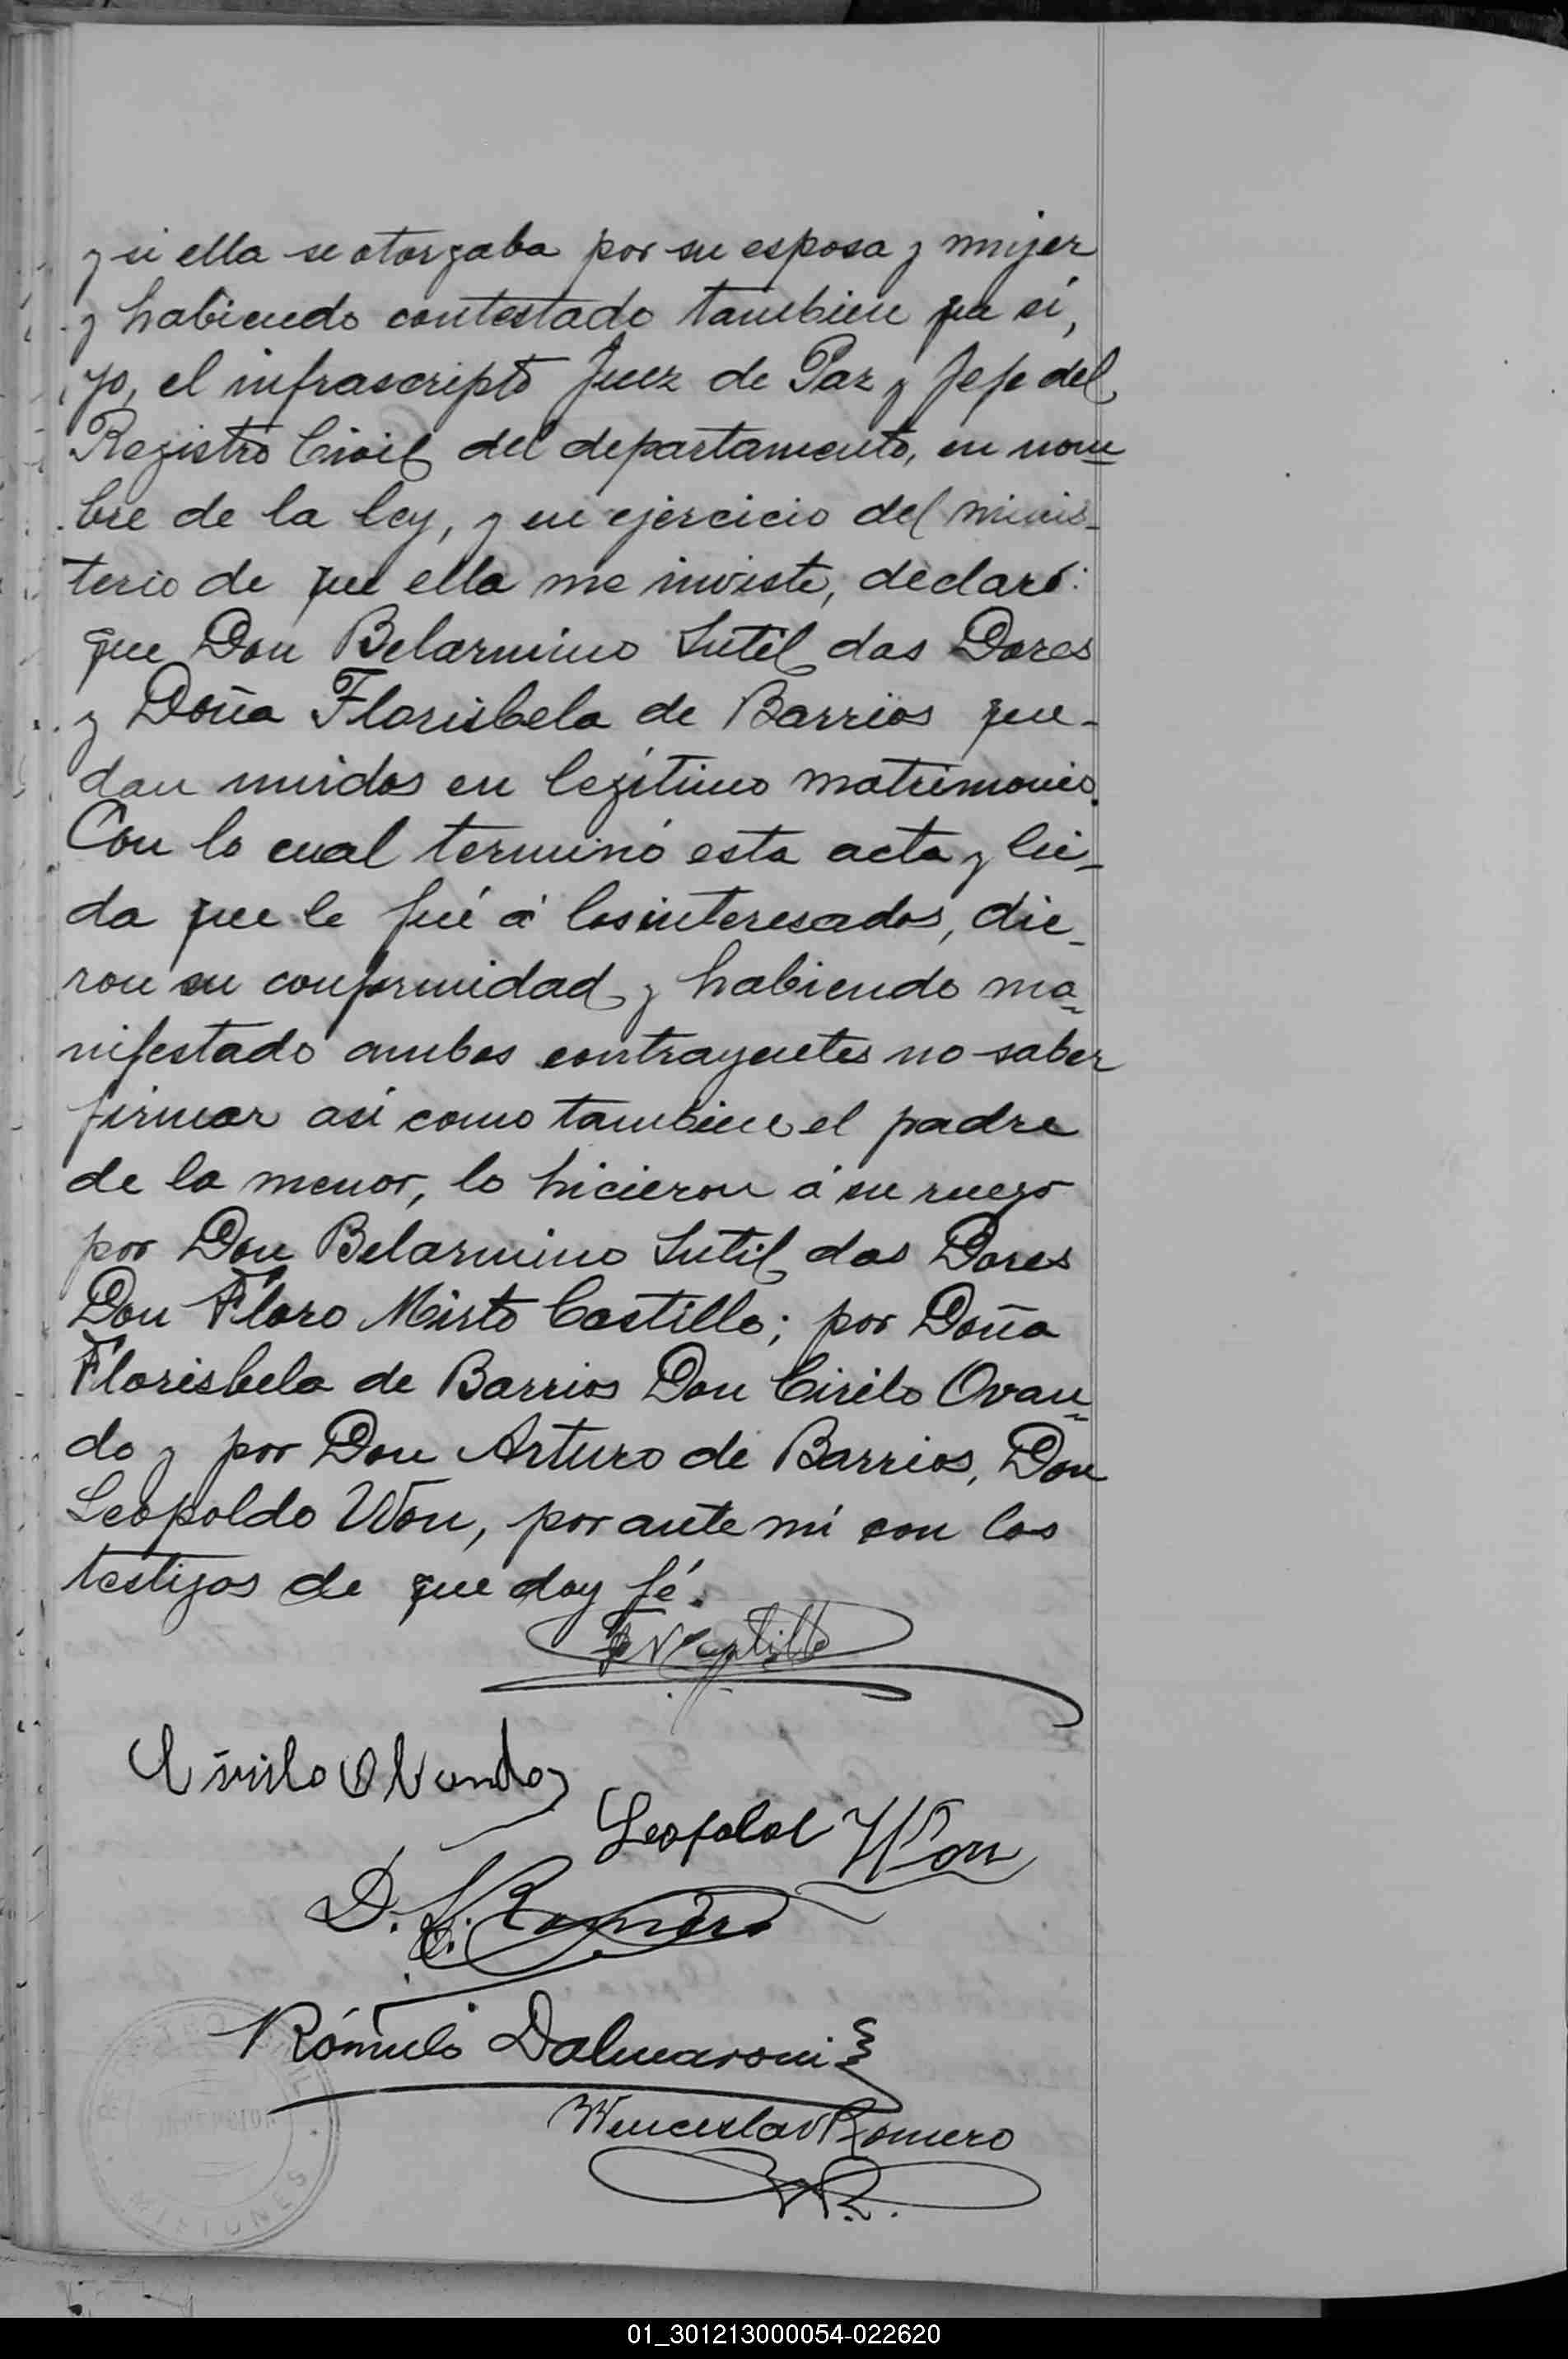 y si ella se otorgaba por su esposa y mujer
y habiendo contestado tambien que sí,
yo, el infrascripto Juez de Paz y Jefe del
Registro Civil del departamento, en nom=
bre de la ley, y en ejercicio del minis-
terio de que ella me inviste, declaro:
que Don Belarmino Sutil das Dores
y Doña Florisbela de Barrios que-
dan unidos en legítimo matrimonio.
Con lo cual terminó esta acta y lei-
da que le fué á los interesados, die-
ron su conformidad y habiendo ma=
nifestado ambos contrayentes no saber
firmar así como tambien el padre
de la menor, lo hicieron á su ruego
por Don Belarmino Sutil das Dores
Don Floro Misto Castillo; por Doña
Florisbela de Barrios Don Cirilo Ovan=
do y por Don Arturo de Barrios, Don
Leopoldo Won, por ante mí con los
testigos de que doy fé.
Castillo
Cirilo Obando
Leopold Won
D. Romero
Rómulo Dalmaroni
Wenceslao Romero
WR.
MISIONES
01_301213000054-022620